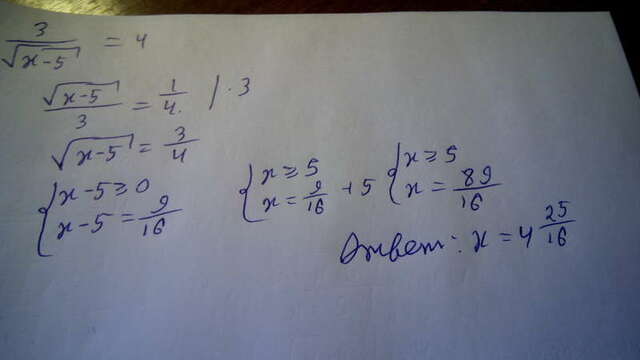 3/√(x-5) = 4
√(x-5)/3 = 1/4. | · 3
√(x-5) = 3/4
{ x-5 ≥ 0
x-5 = 9/16
{ x ≥ 5
x = 9/16 + 5
{ x ≥ 5
x = 89/16
Ответ: x = 4 25/16